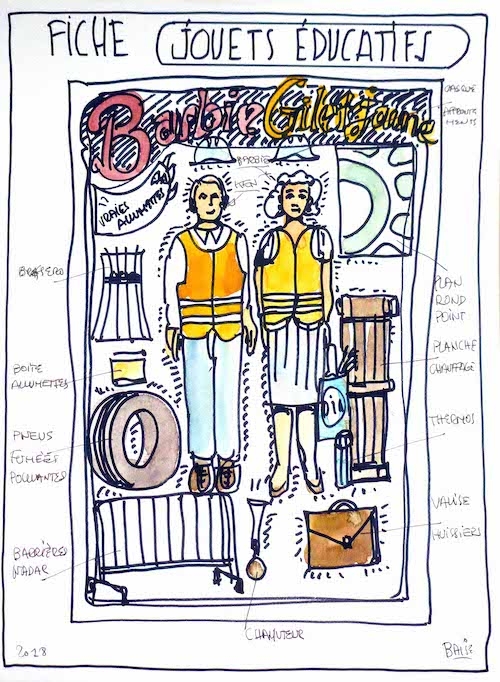 FICHE JOUETS ÉDUCATIFS
Barbie Gilet jaune
CASQUE
AFFRONTE
MENTS
BARBIE
KEN
VRAIES
ALLUMETTES
BRASERO
PLAN
ROND
POINT
PLANCHE
CHAUFFAGE
BOITE
ALLUMETTES
THERMOS
PNEUS
FUMÉES
POLLUANTES
VALISE
HUISSIERS
BARRIÈRES
NADAR
CHAHUTEUR
2018